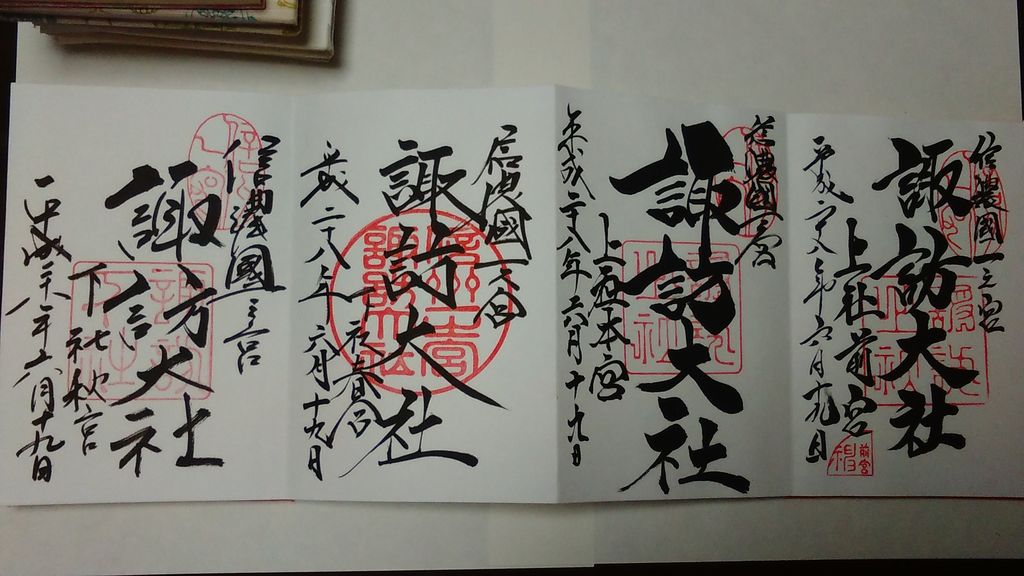 信濃國一之宮
諏訪大社
上社前宮
平成二十八年六月十九日
前宮
信濃國一之宮
諏訪大社
上社本宮
平成二十八年六月十九日
信濃國一之宮
諏訪大社
下社春宮
平成二十八年六月十九日
信濃國一之宮
諏訪大社
下社秋宮
平成二十八年六月十九日